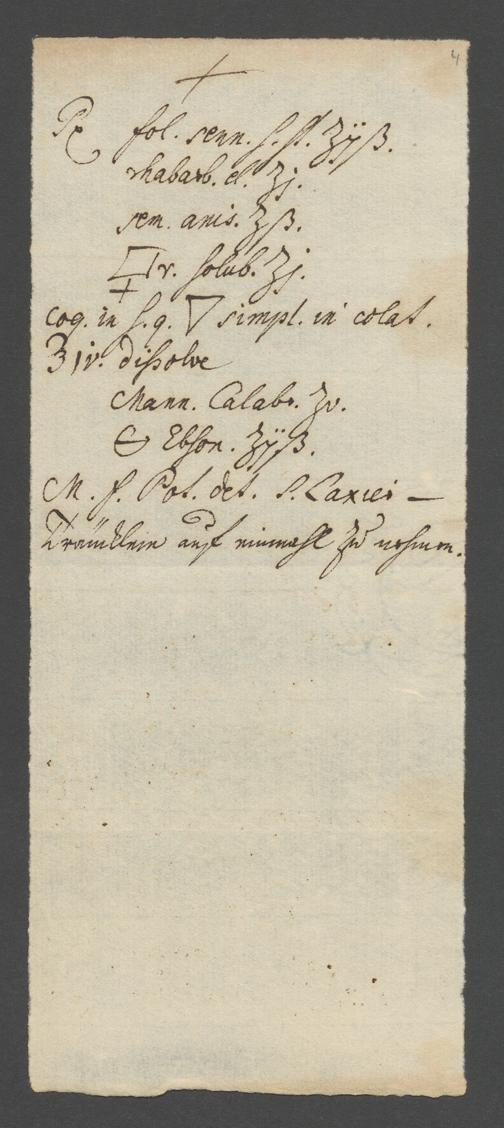 4
+
℞ fol. senn. s. st. ʒijß.
rhabarb. el. ʒj.
sem. anis. ʒß.
🜿r. solub. ʒj.
coq. in s. q. ▽ simpl. in colat.
℥iv. dissolve
Mann. Calabr. ʒv.
🜔 Ebson. ʒijß.
M. f. Pot. det. s. Laxier-
Tränklein auf einmahl zu nehmen.